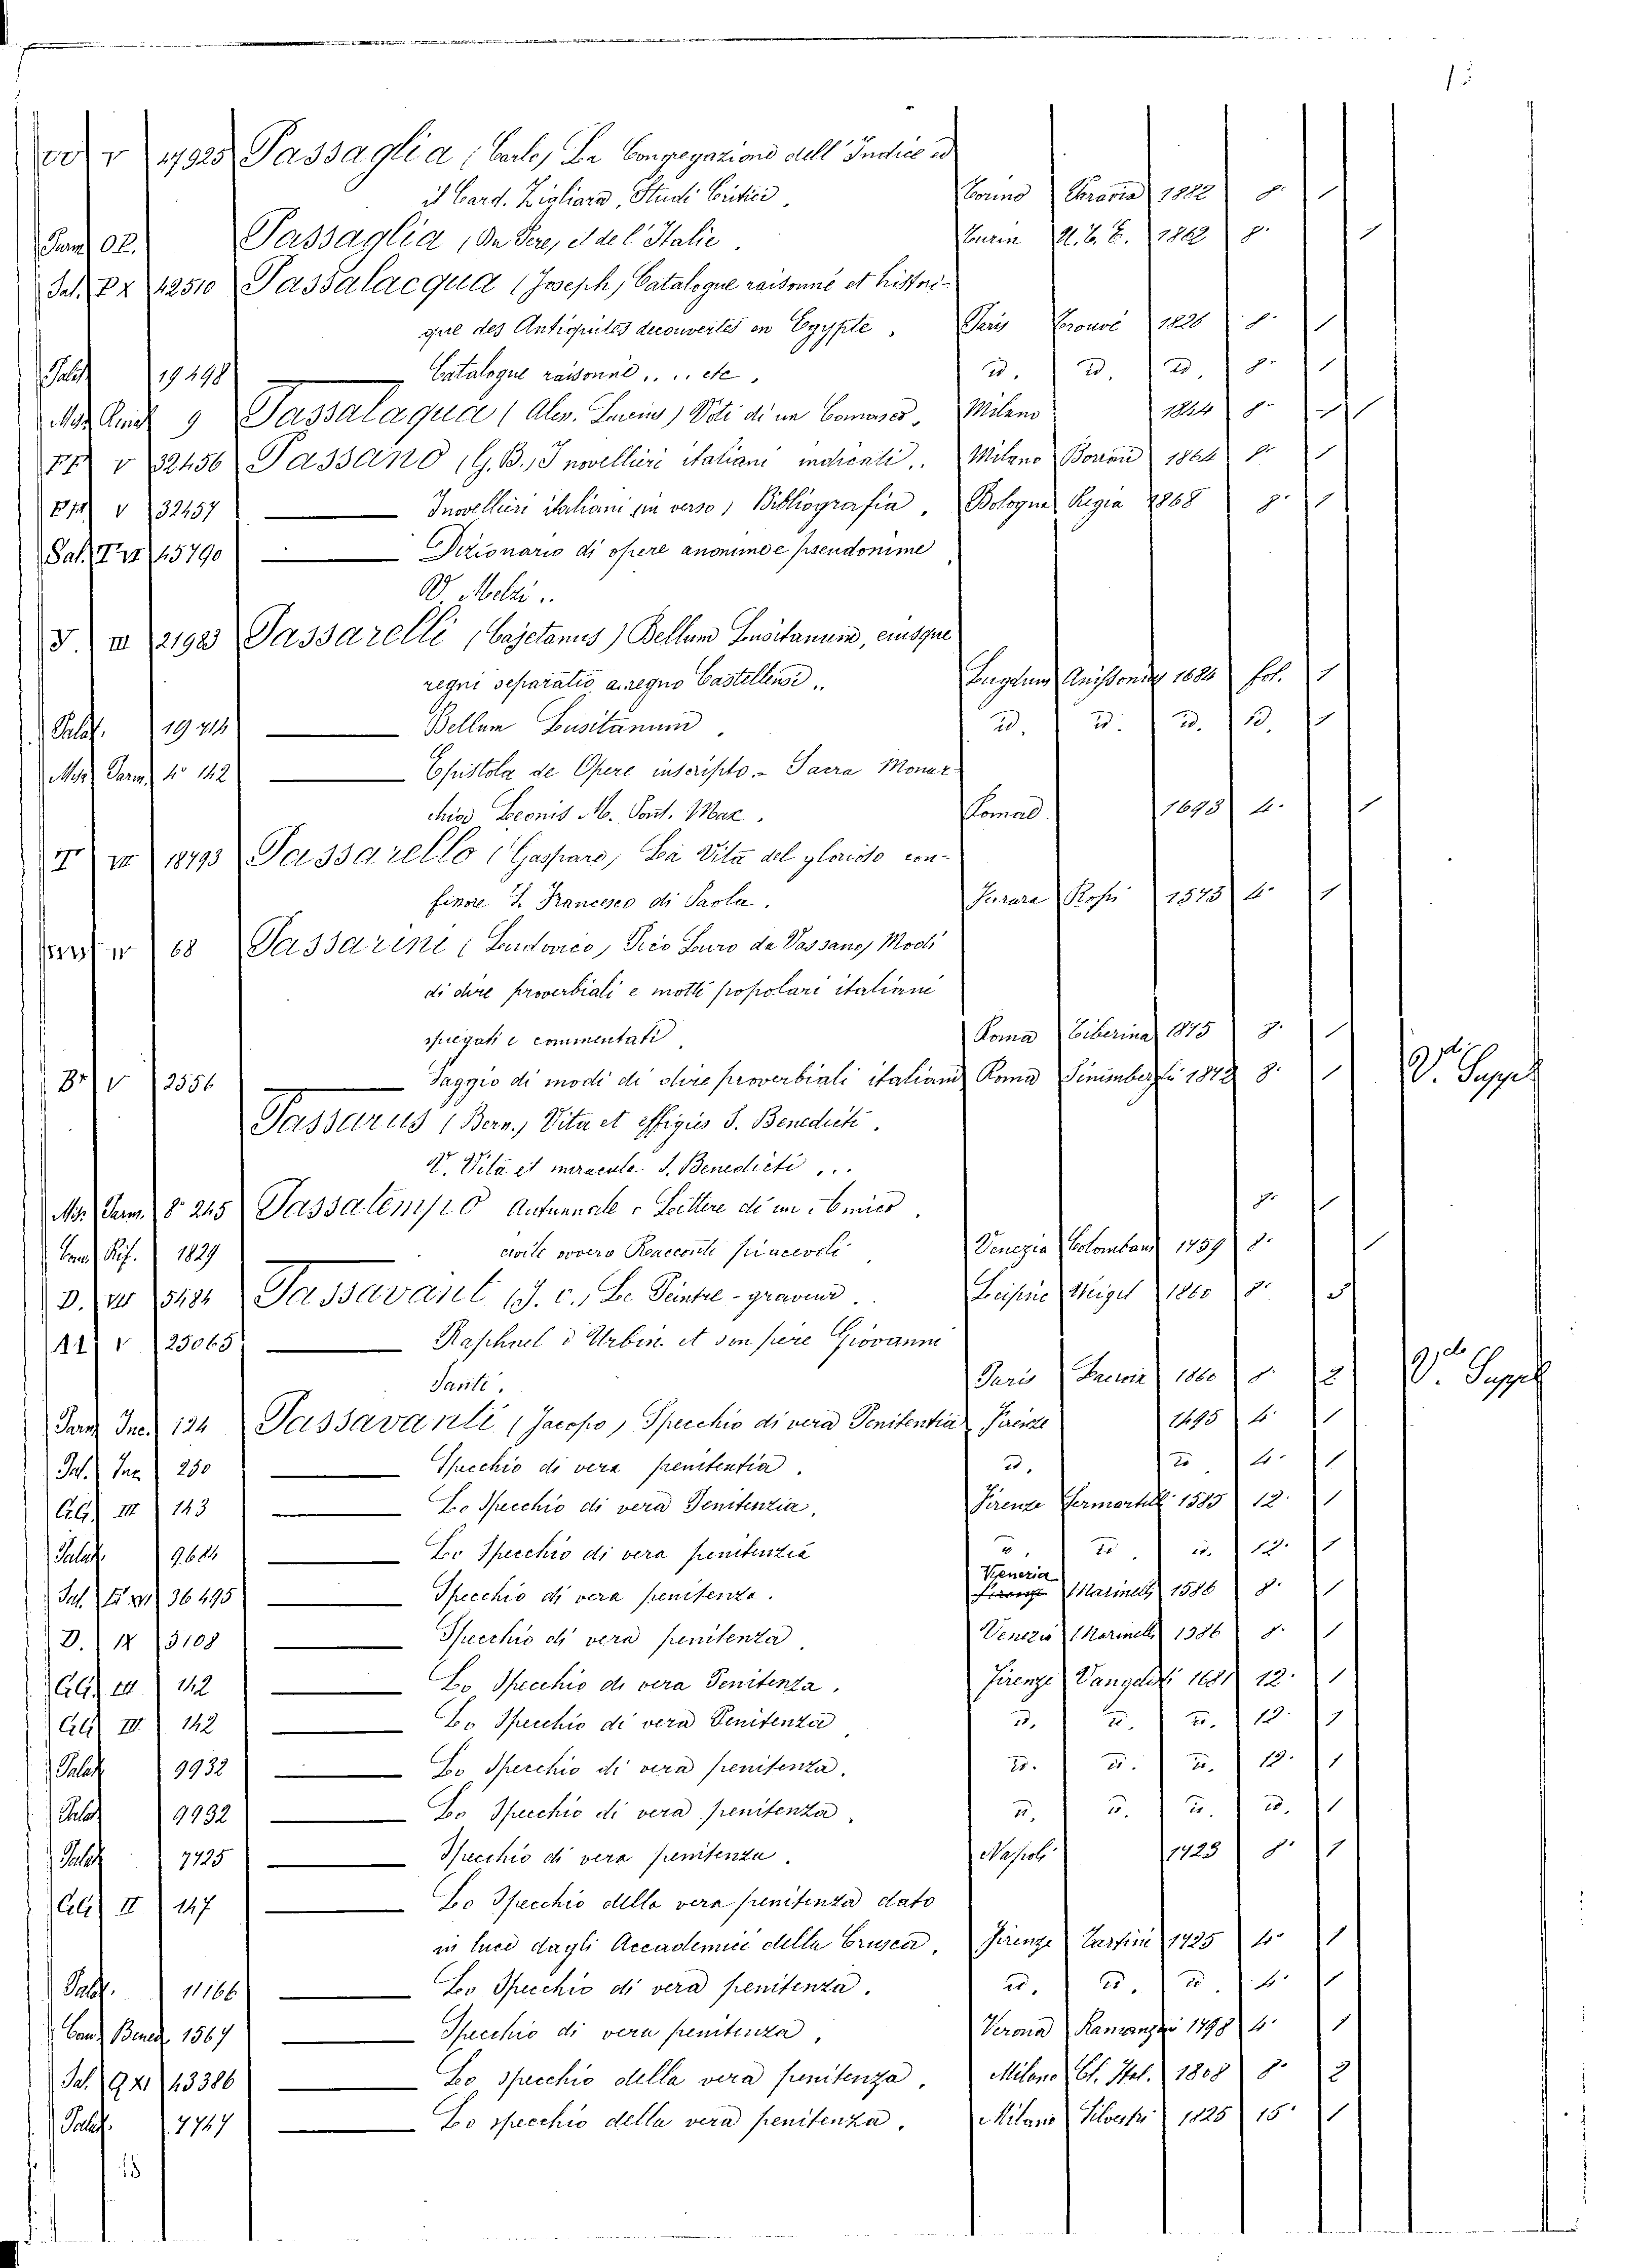 V 17925 Passaglia (Carlo) La Congregazione dell' Indice ed
il Card. Zigliara, Studi Critici. Torino Paravia 1882 8. 1
Passaglia, On Pere, et de l'Italie. Turin 1862 8. 1
Sal. 42510 Passalacqua (Joseph) Catalogue raisonné et histori-
que des Antiquités decouvertes en Egypte. Paris 1826 8. 1
Palat. 19498 Catalogue raisonné.... etc. id. id. id. 8. 1
9 Passalaqua (Voti di un Comasco. Milano 1844 8.
V 32456 Passano (G. B.) I novellieri italiani indicati.. Milano 1864 8. 1
V 32457 I novellieri italiani in verso, Bibliografia. Bologna Regia 1868 8. 1
Sal. 45790 Dizionario di opere anonime e pseudonime
V. Melzi..
III 21923 Passarelli (Cajetanus) Bellum Lusitanum, eiusque
regni separatio a regno Castellense.. Lugduni Anissonii 1684 fol. 1
Palat. Bellum Lusitanum. id. id. id. id. 1
Parm. 4° 142 Epistola de Opere inscripto - Sacra Monar-
chia Leonis M. Pont. Max. Romae 1693 4. 1
18793 Passarello (Gaspare) La Vita del glorioso con-
fessore S. Francesco di Paola. 1573 4. 1
68 Passarini (Ludovico, Pico Luro da Vassano) Modi
di dire proverbiali e motti popolari italiani
spiegati e commentati. Roma Tiberina 1875 8. 1
V 2556 Saggio di modi di dire proverbiali italiani Roma Sinimberghi 1872 8. 1 V. Suppl.
Passarus (Bern.) Vita et effigies S. Benedicti.
V. Vita et miracula S. Benedicti...
Parm. 8° 245 Passatempo Autunnale - Lettere di un Amico. 8. 1
Rif. 1829 civile ovvero Racconti piacevoli. Venezia Colombani 1759 8. 1
D. VII Passavant (J. C.) Le Peintre-graveur. Leipzig Weigel 1860 8.
V 25065 Raphael d'Urbin et son père Giovanni
Santi. Paris 1860 8. 2 V. Suppl.
Inc. 124 Passavanti (Jacopo) Specchio di vera Penitentia Firenze 1495 4. 1
Inc. 250 Specchio di vera penitentia. id. id. 4. 1
III 143 Lo Specchio di vera Penitenzia. Firenze Sermartelli 1585 12. 1
Palat. 9684 Lo Specchio di vera penitenzia id. id. id. 12. 1
36495 Specchio di vera penitenza. Venezia Marinelli 1586 8. 1
D. IX 5108 Specchio di vera penitenza. Venezia Marinelli 1586 8. 1
142 Lo Specchio di vera Penitenza. Firenze Vangelisti 1681 12. 1
142 Lo Specchio di vera Penitenza id. id. id. 12. 1
Palat. 9932 Lo Specchio di vera penitenza. id. id. id. 12. 1
Palat. 9932 Lo Specchio di vera penitenza. id. id. id. id. 1
Palat. 7725 Specchio di vera penitenza. Napoli 1723 8. 1
II 147 Lo Specchio della vera penitenza dato
in luce dagli Accademici della Crusca. Firenze Tartini 1725 4. 1
Palat. 11166 Lo Specchio di vera penitenza. id. id. id. 4. 1
1567 Specchio di vera penitenza. Verona Ramanzini 1798 4. 1
43386 Lo specchio della vera penitenza. Milano Cl. Ital. 1808 8. 2
Palat. 7747 Lo specchio della vera penitenza. Milano Silvestri 1825 15. 1